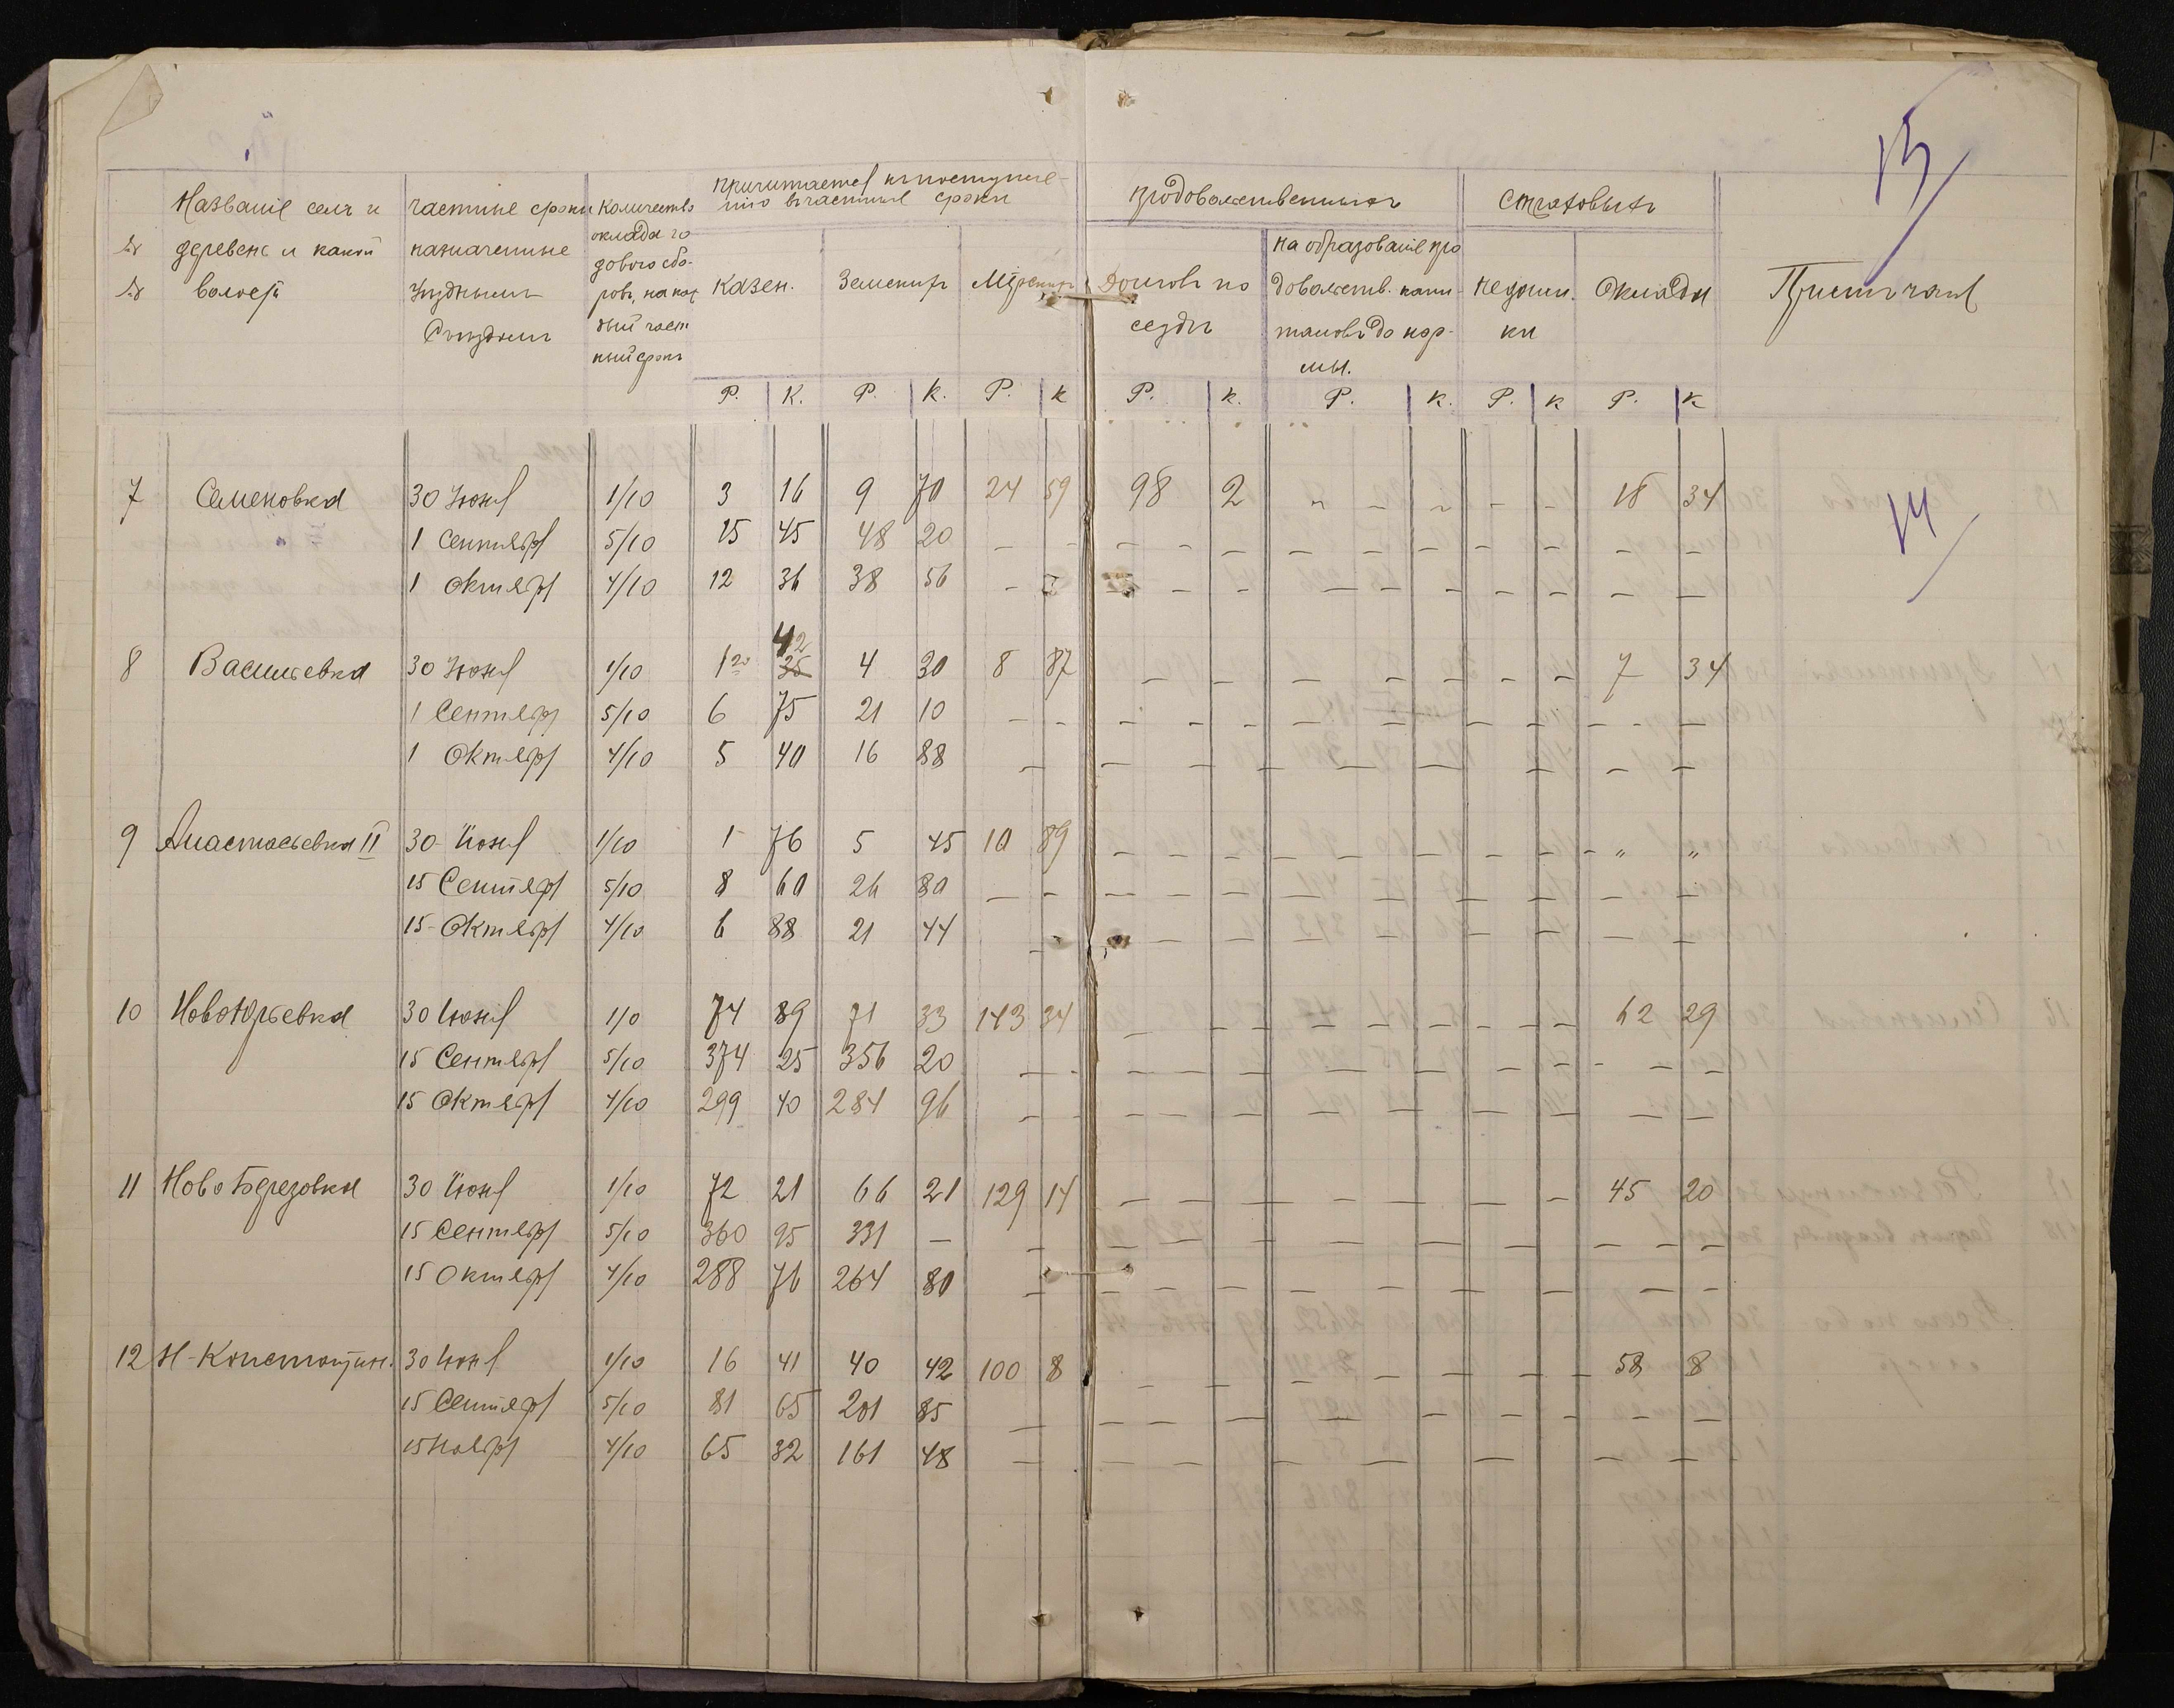 13
№ №
Названіе селъ и деревень и какой волости
частные сроки назначенные Уѣзднымъ Съѣздомъ
Количество оклада годового сборовъ, на каждый частный срокъ
причитается къ поступленію въ частные сроки
Казен.
Земскихъ
Мірскихъ
продовольственныхъ
Долговъ по ссудѣ
на образованіе продовольств. капиталовъ до нормы.
страховыхъ
недоимки
Оклады
Примѣчаніе
Р. К. Р. К. Р. К Р. К. Р. К. Р. К Р. К
7 Семеновка 30 Іюня 1/10 3 16 9 70 24 59 98 2 " – – – – 18 34
14
1 Сентября 5/10 15 45 48 20 – – – – – – – – – – – –
1 Октября 4/10 12 36 38 56 – – – – – – – – – –
8 Васильевка 30 Іюня 1/10 1 42 4 30 8 87 – – – – – – – 7 34
1 Сентября 5/10 6 75 21 10 – – – – – – – – – – – –
1 Октября 4/10 5 40 16 88 – – – – – – – –
9 Анастасьевка II 30 Іюня 1/10 1 76 5 45 10 89 – – – – – – – – " "
15 Сентября 5/10 8 60 26 80 – – – – – – – – – – –
15 Октября 4/10 6 88 21 44 – – – – – – – – –
10 Новоюрьевка 30 Іюня 1/10 74 89 71 33 143 34 – – – – – – – – 62 29
15 Сентября 5/10 374 25 356 20 – – – – – – – – – – – –
15 Октября 4/10 299 40 284 96 – – – – – – – – – – – –
11 Ново Березовка 30 Іюня 1/10 72 21 66 21 129 14 – – – – – – – – 45 20
15 Сентября 5/10 360 95 331 – – – – – – – – – – – –
15 Октября 4/10 288 76 264 80 – – – – – – – – – – –
12 Н-Константин. 30 Іюня 1/10 16 41 40 42 100 8 – – – – – – – – 58 8
15 Сентября 5/10 81 65 201 85 – – – – – – – – – –
15 Ноября 4/10 65 32 161 48 – – – – – – – – – –